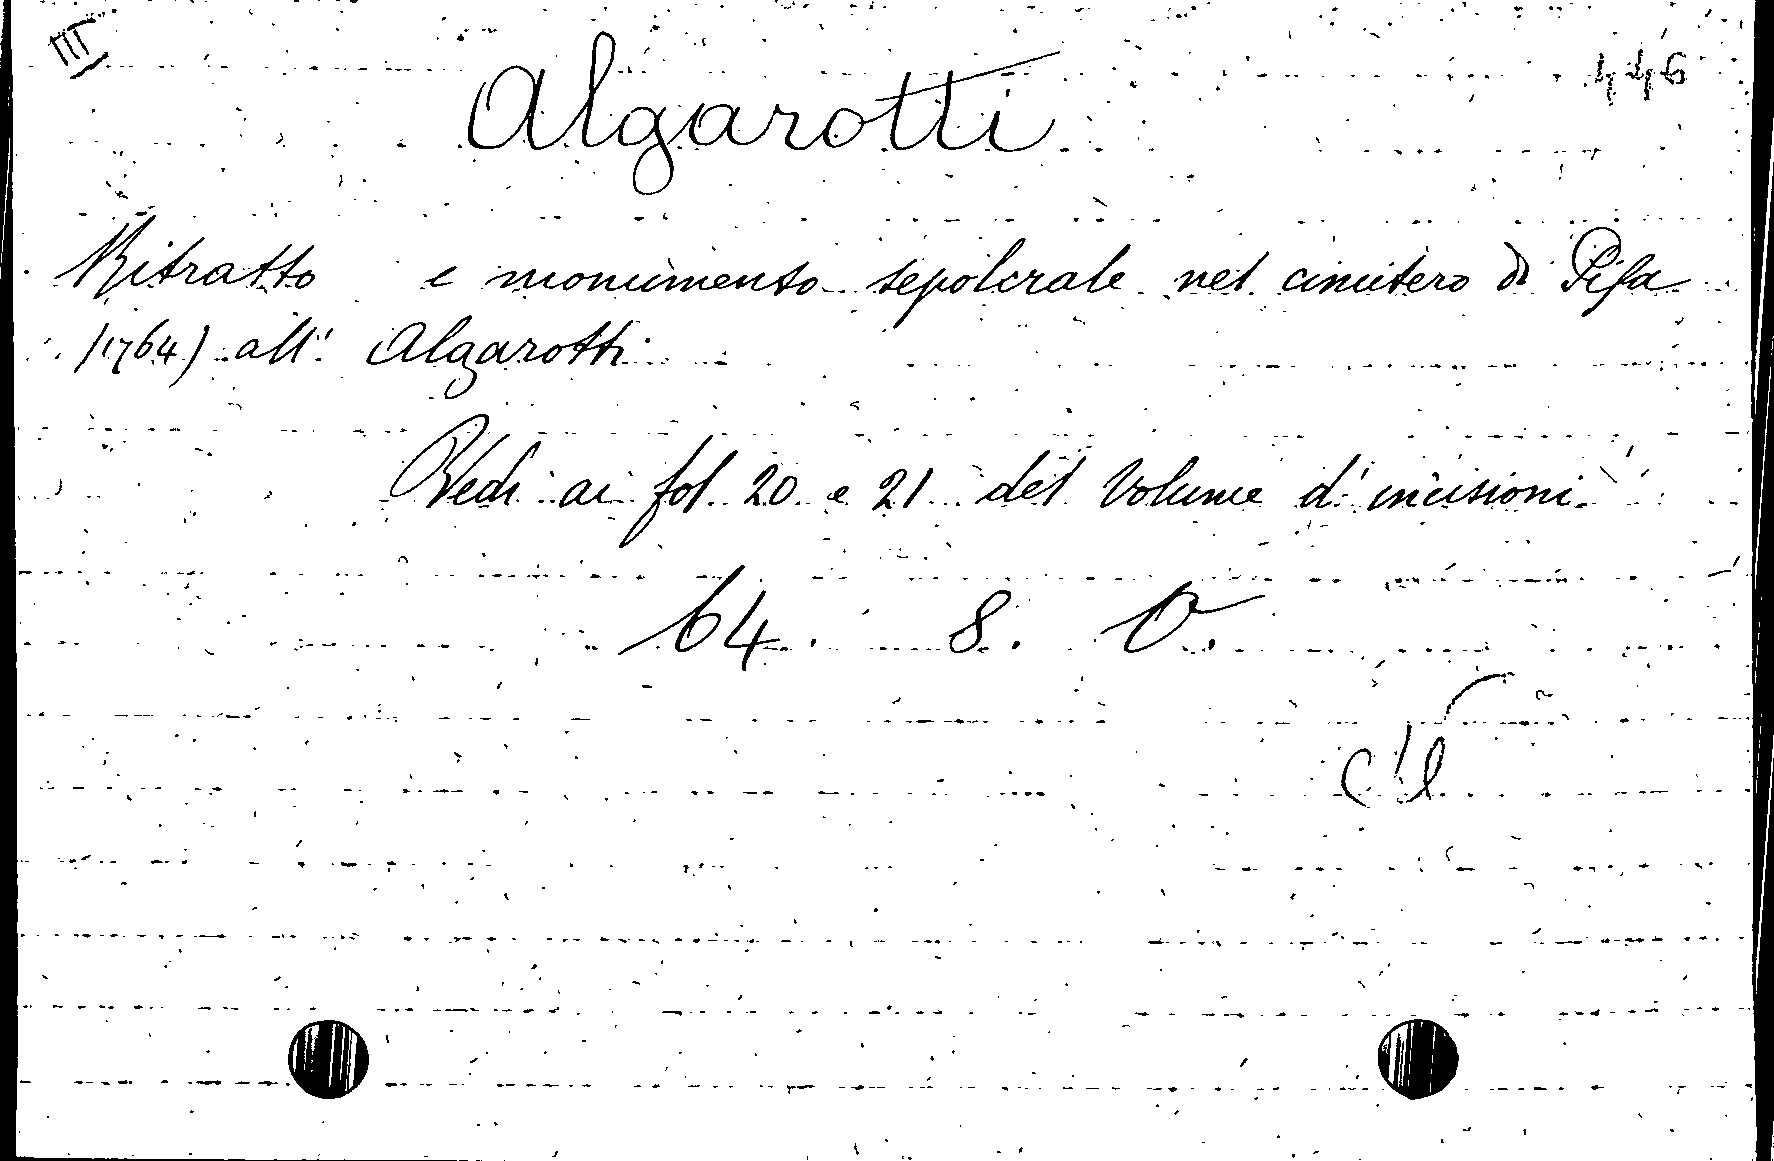 III
446
Algarotti
Ritratto e monumento sepolcrale nel cimitero di Pisa
(1764) all' Algarotti
Vedi ai fol. 20 e 21 del Volume d'incisioni
64. 8. O.